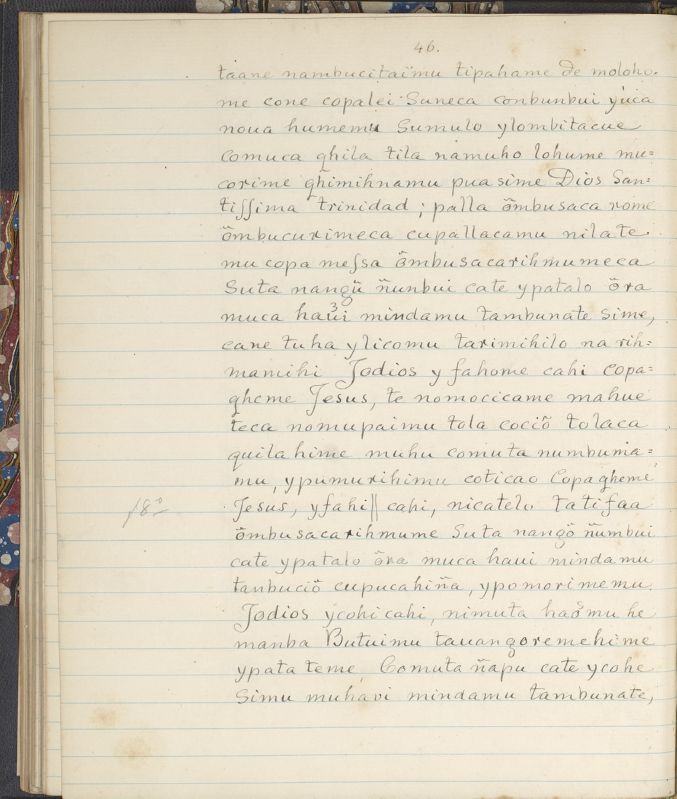 46.
taane nambucitaimu tipahame de moloho.
me cone copalei Suneca conbunbui yuca
noua humemu Sumulo ylombitacue
comuca qhila tila namuho lohume mu=
corime qhimihnamu puasime Dios San=
tissima trinidad; palla õmbusaca rome
õmbucurimeca cupallacamu nilate.
mu copa messa õmbusacarihmumeca
Suta nangũ ñunbui cate ypatalo õra
muca haui mindamu tambunate sime,
cane tuha ylicomu tarimihilo na rih=
mamihi Jodios y fahome cahi copa=
gheme Jesus, te nomocicame mahue
teca nomupaimu tola cociõ tolaca
quilahime muhu comuta numbuma=
mu, ypumurihimu coticao Copagheme
18ª
Jesus, yfahi || cahi, nicatelo tatifaa
õmbusacarihmume Suta nangõ ñumbui
cate ypatalo õra muca haui mindamu
tanbuciõ cupucahiña, ypomorimemu.
Jodios ycohicahi, nimuta haomu he
manba Butuimu tauangoremehime
ypata teme, Comuta ñapu cate ycohe
Simu muhavi mindamu tambunate,